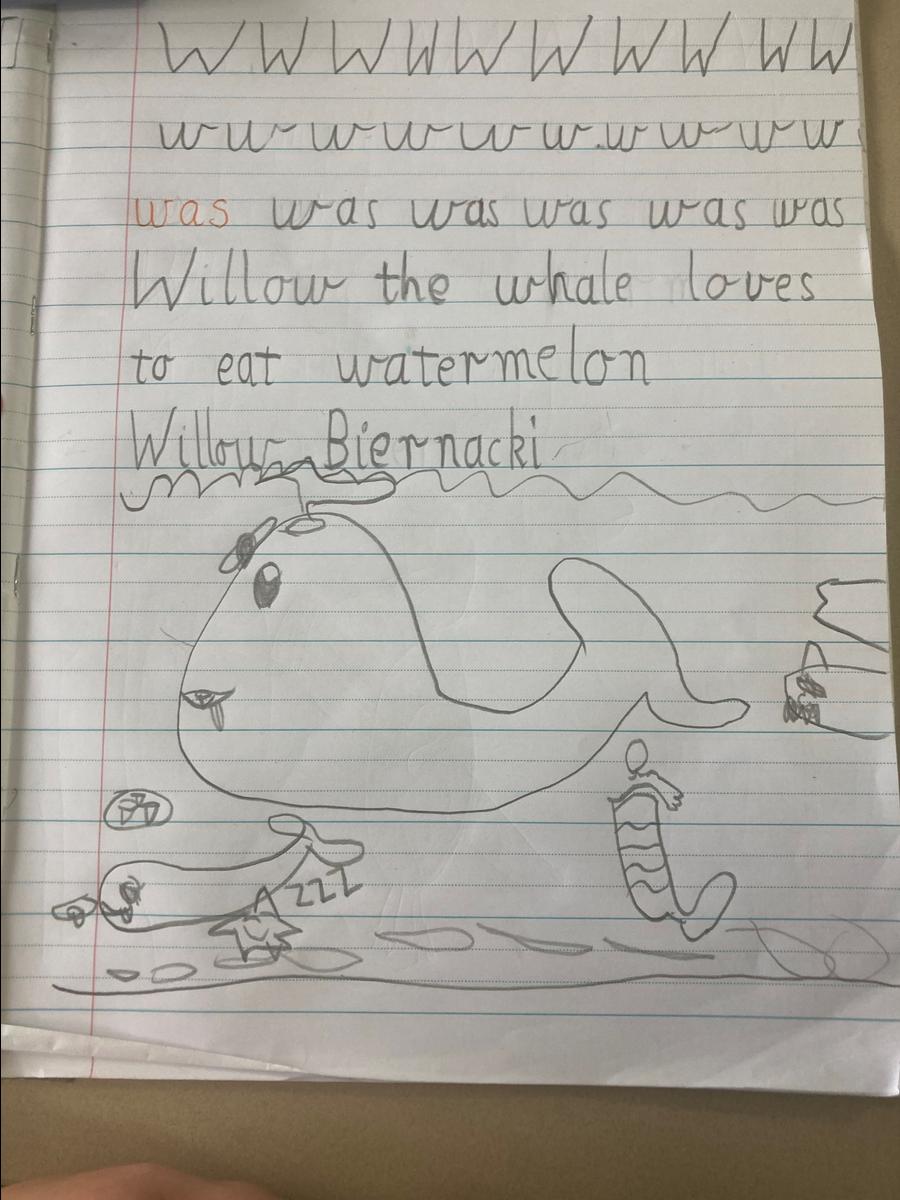 W W W W W W W W W W
w w w w w w w w w w
was was was was was was
Willow the whale loves
to eat watermelon
Willow Biernacki
ZZZ